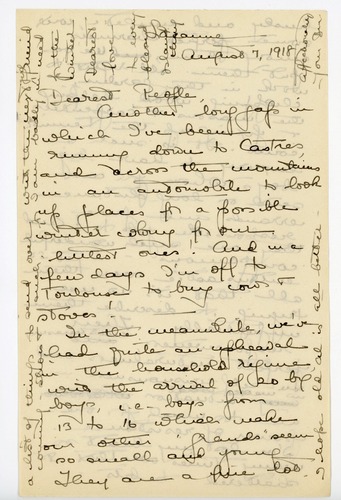 August 7, 1918
Dearest People,
Another long gap in
which I've been
running down to Castres
and across the mountains
in an automobile to look
up places for a possible
winter colony for our
littlest ones! And in a
few days I'm off to
Toulouse to buy cows &
stoves!
In the meanwhile, we've
had quite an upheaval
in the household régime
with the arrival of 20 big
boys, i.e. boys from
13 to 16 which make
our other "grands" seem
so small and young.
They are a fine lot.
I hope old Al is all better.
a list of things to send over
Dearest
love